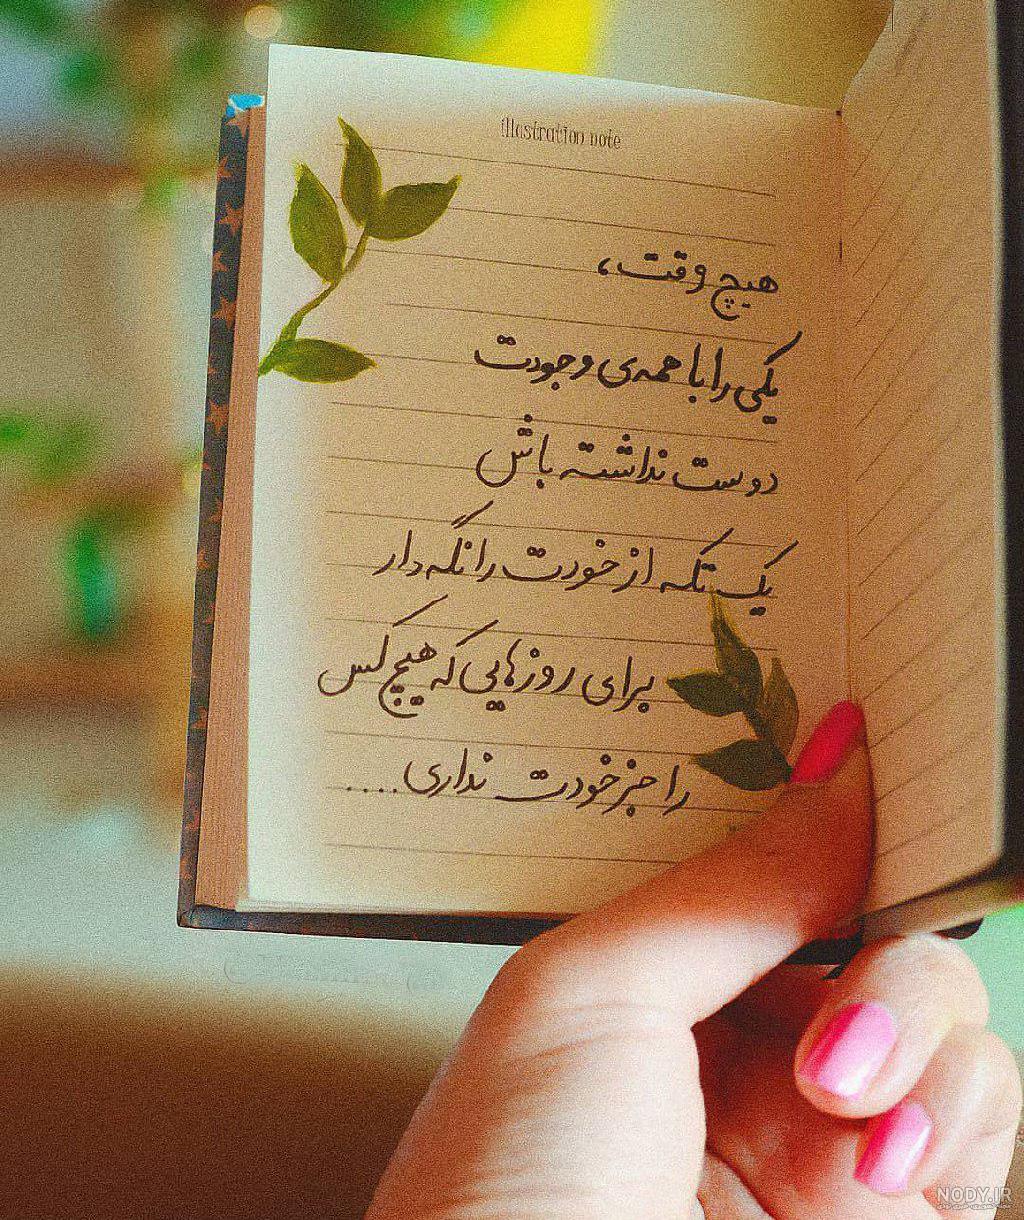 illustration note
هیچ وقت،
یکی را با همه‌ی وجودت
دوست نداشته باش
یک تکه از خودت را نگه دار
برای روزهایی که هیچ کس
را جز خودت نداری....
NODY.IR